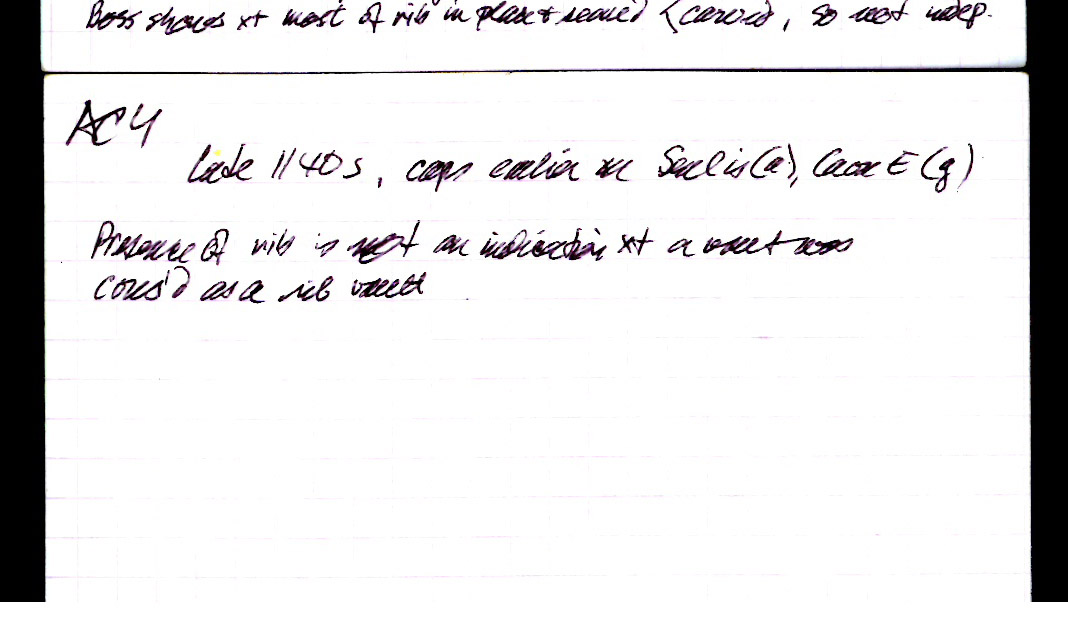 Boss shows xt most of rib in place & (carved, so not indep.
AC4
Late 1140s, caps earlier xn Senlis(a), Laon E (g)
Presence of rib is not an indication xt a vault was
cons'd as a rib vault